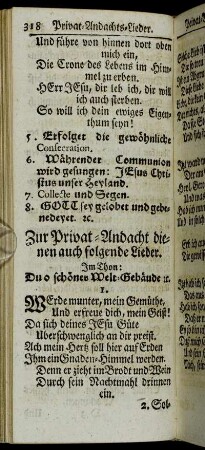 318 Privat-Andachts-Lieder.
Und führe von hinnen dort oben
mich ein,
Die Crone des Lebens im Him-
mel zu erben.
HErr JEsu, dir leb ich, dir will
ich auch sterben.
So will ich dein ewiges Eigen-
thum seyn!
5. Erfolget die gewöhnliche
Consecration.
6. Währender Communion
wird gesungen: JEsus Chri-
stus unser Heyland.
7. Collecte und Segen.
8. GOTT sey gelobet und gebe-
nedeyet. ꝛc.
Zur Privat-Andacht die-
nen auch folgende Lieder.
Im Thon:
Du o schönes Welt-Gebäude ꝛc.
1.
WErde munter, mein Gemüthe,
Und erfreue dich, mein Geist!
Da sich deines JEsu Güte
Überschwenglich an dir preist.
Ach mein Hertz soll hier auf Erden
Ihm ein Gnaden-Himmel werden.
Denn er zieht im Brodt und Wein
Durch sein Nachtmahl drinnen
ein.
2. Sol-